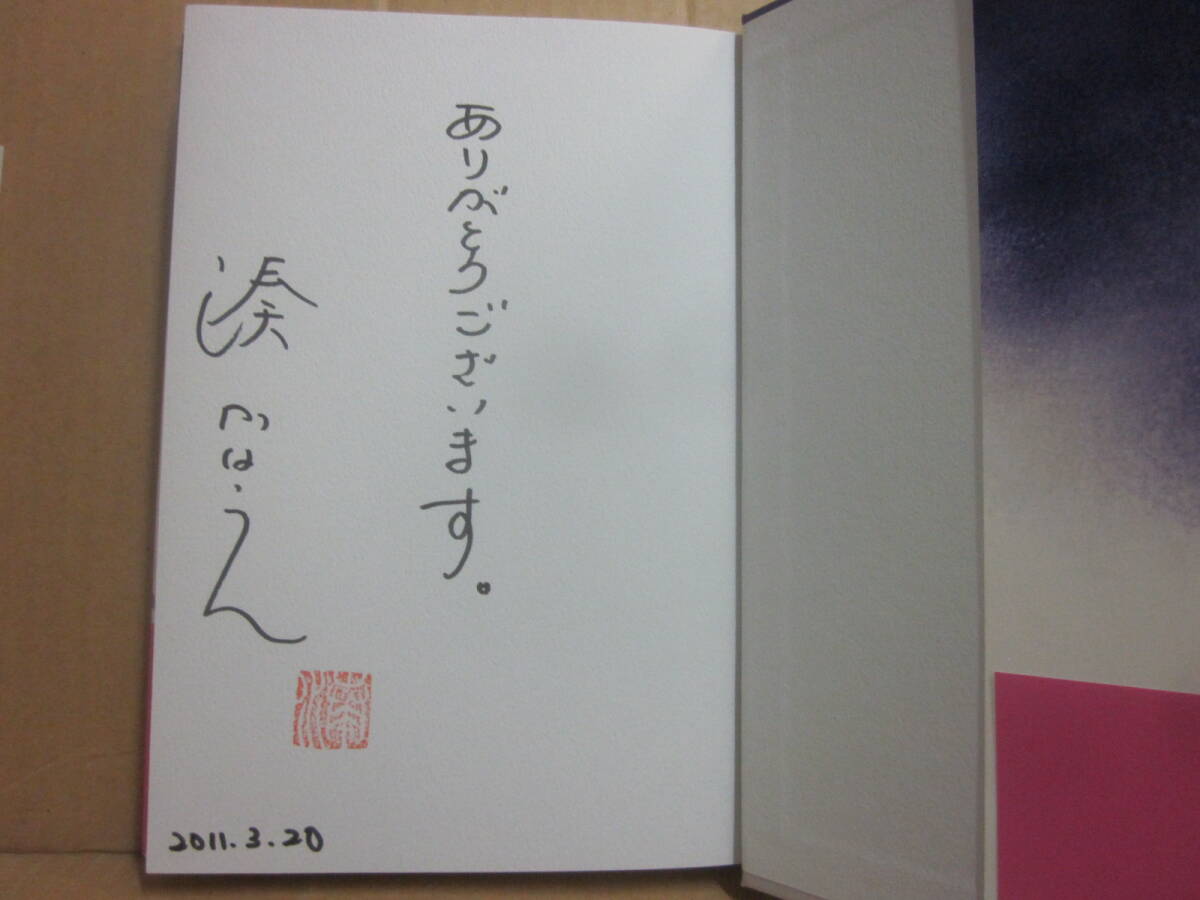 ありがとうございます。
湊かなえ
湊
2011.3.20